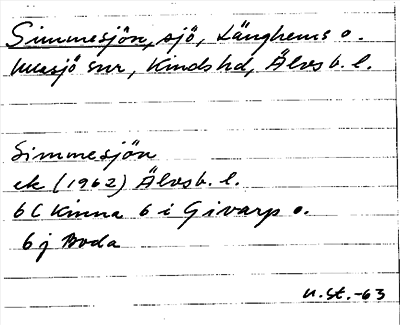 Simmesjön, sjö, Länghems o.
Hulesjö snr, Kinds hd, Älvsb. l.
Simmesjön
ek (1962) Älvsb. l.
6 C Kinna 6 i Givarp o.
6 j Boda
n.st.-63